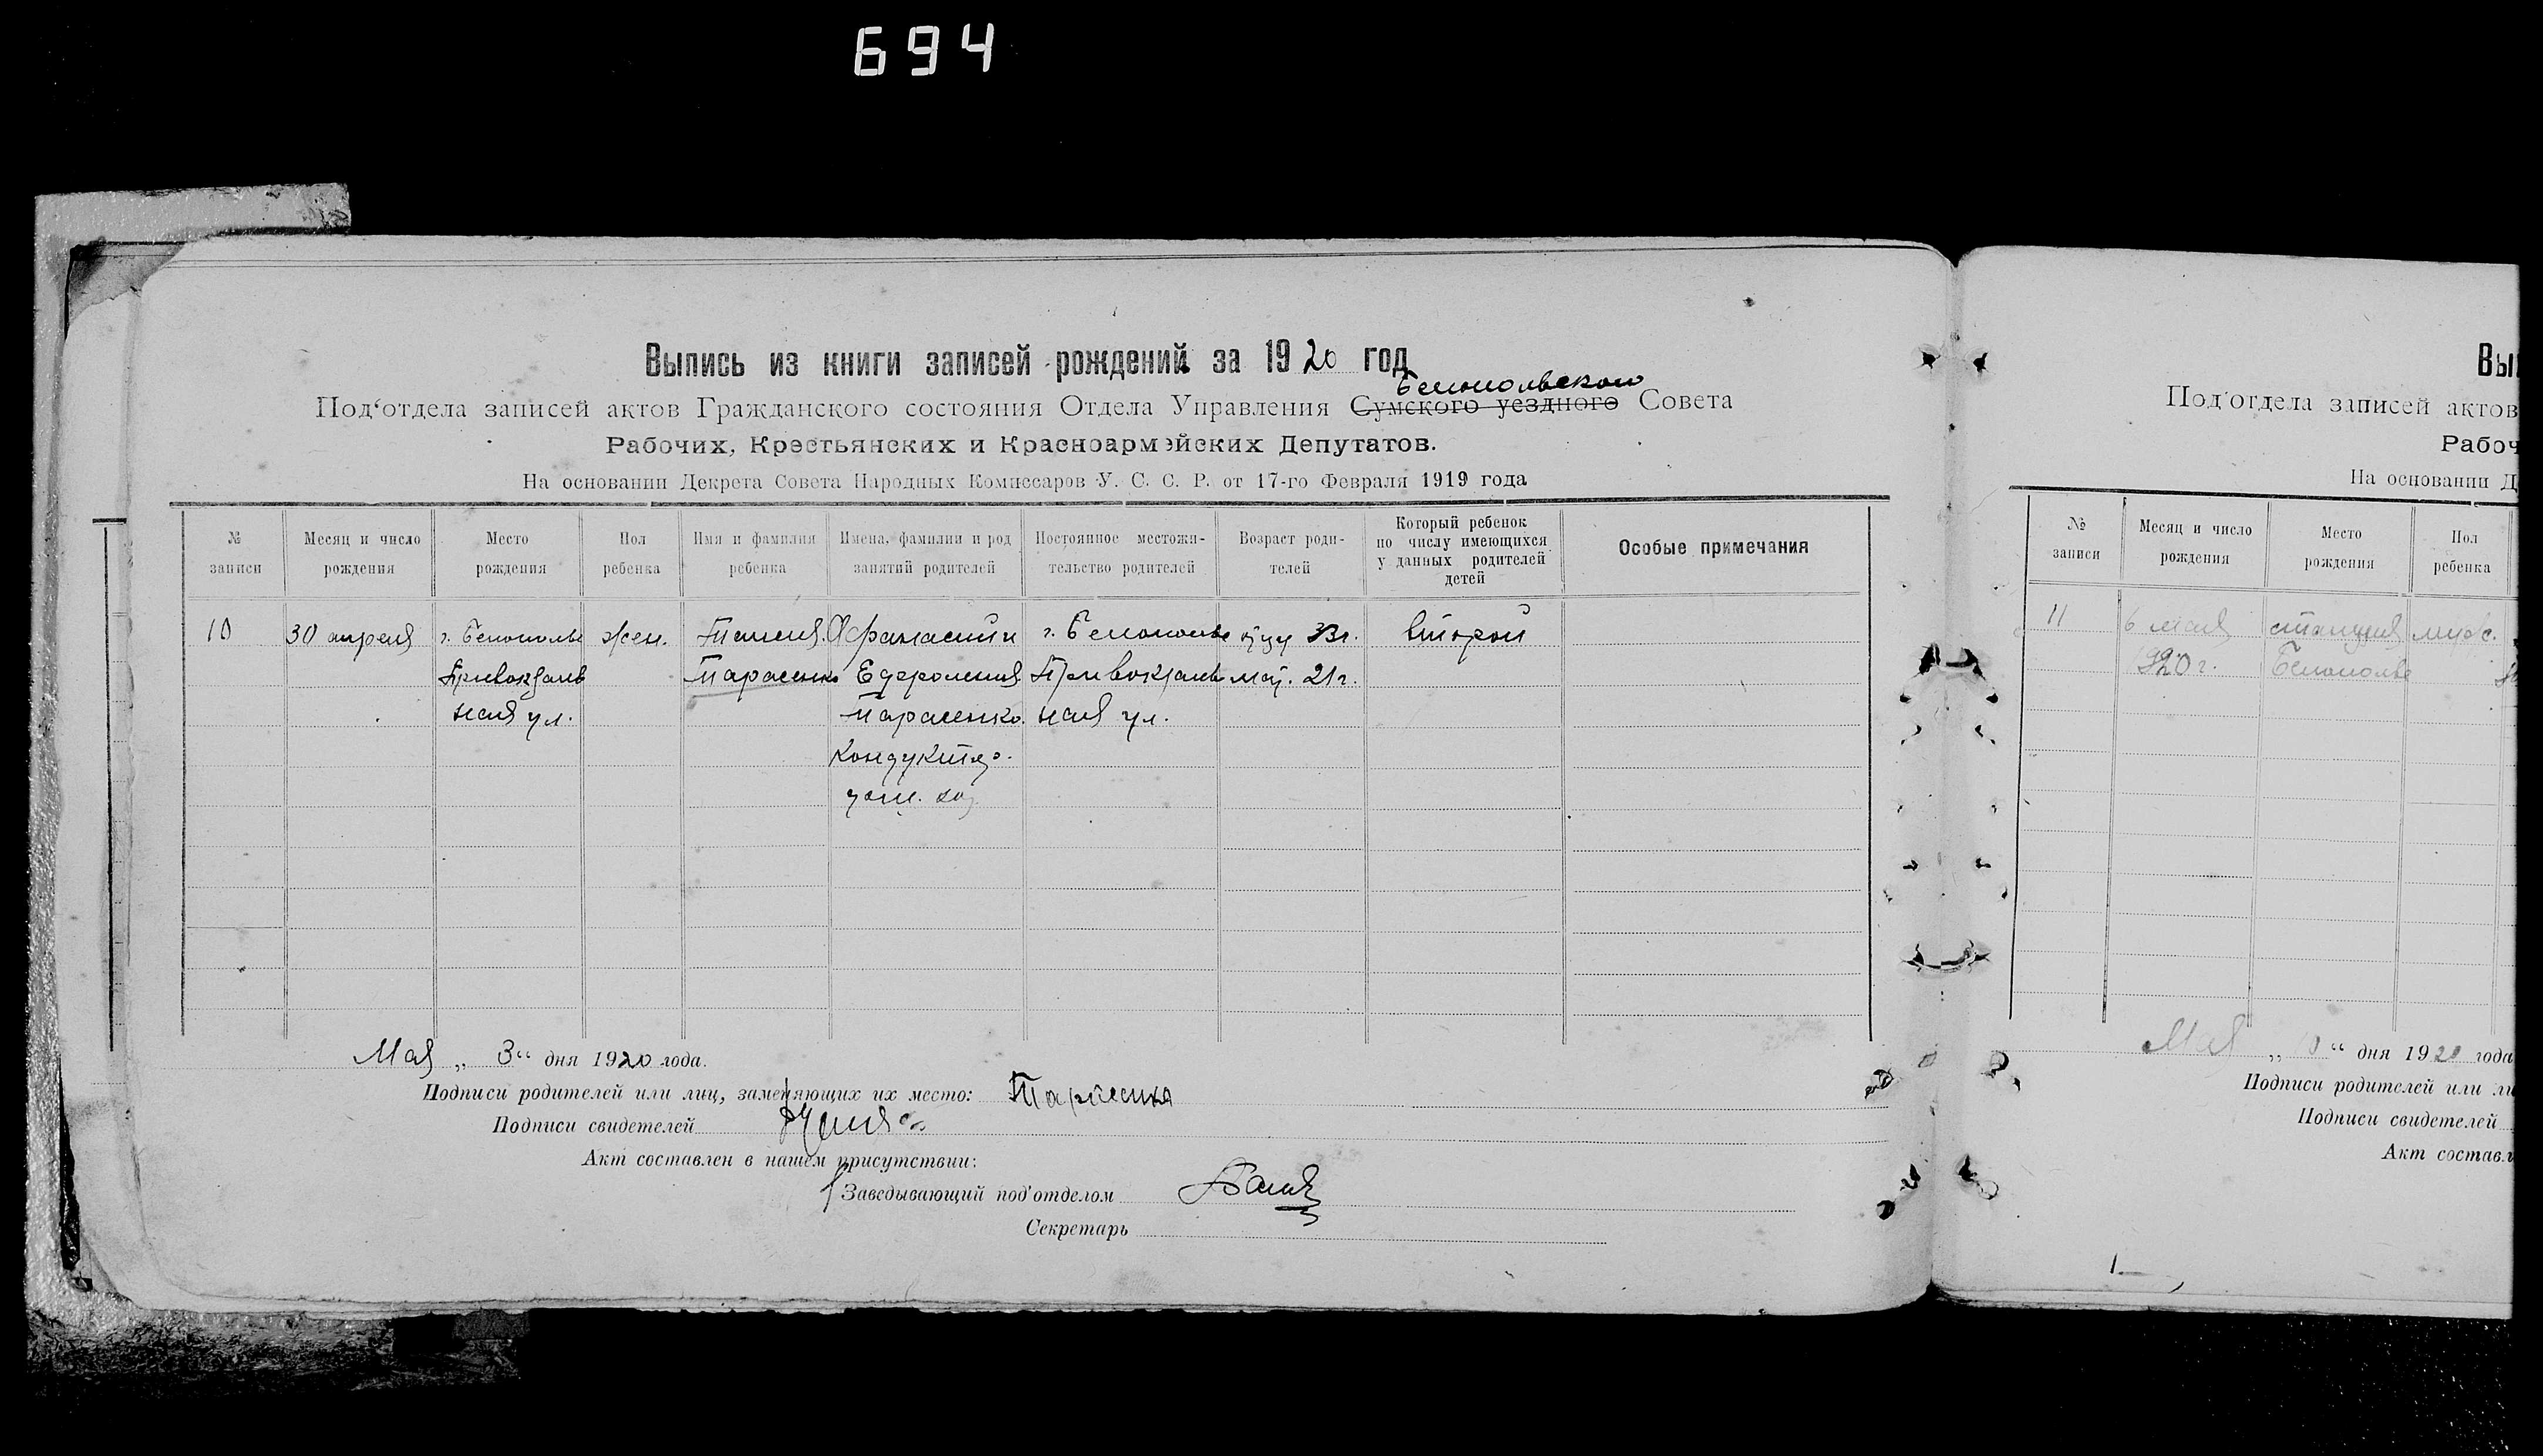 694
Выпись из книги записей рождений за 1920 год
Белопольского
Под'отдела записей актов Гражданского состояния Отдела Управления Сумского уездного Совета
Рабочих, Крестьянских и Красноармейских Депутатов.
На основании Декрета Совета Народных Комиссаров У. С. С. Р. от 17-го Февраля 1919 года
№ записи
Месяц и число рождения
Место рождения
Пол ребенка
Имя и фамилия ребенка
Имена, фамилии и род занятий родителей
Постоянное местожительство родителей
Возраст родителей
Который ребенок по числу имеющихся у данных родителей детей
Особые примечания
10
30 апреля
г. Белополье
Привокзаль
ная ул.
жен.
Таисия
Тарасенко
Афанасий и
Ефросиния
Тарасенко.
Кондуктор
г. Белополье
Привокзаль
ная ул.
33 г.
21 г.
второй
Мая „ 3 “ дня 1920 года.
Подписи родителей или лиц, заменяющих их место: Тарасенко
Подписи свидетелей
Акт составлен в нашем присутствии:
Заведывающий под'отделом
Секретарь
Вы
Под'отдела записей актов
Рабоч
На основании Д
№ записи
Месяц и число рождения
Место рождения
Пол ребенка
11
6 мая
1920 г.
станция
Белополье
муж.
Мая „ 10 “ дня 1920 года
Подписи родителей или ли
Подписи свидетелей
Акт составл